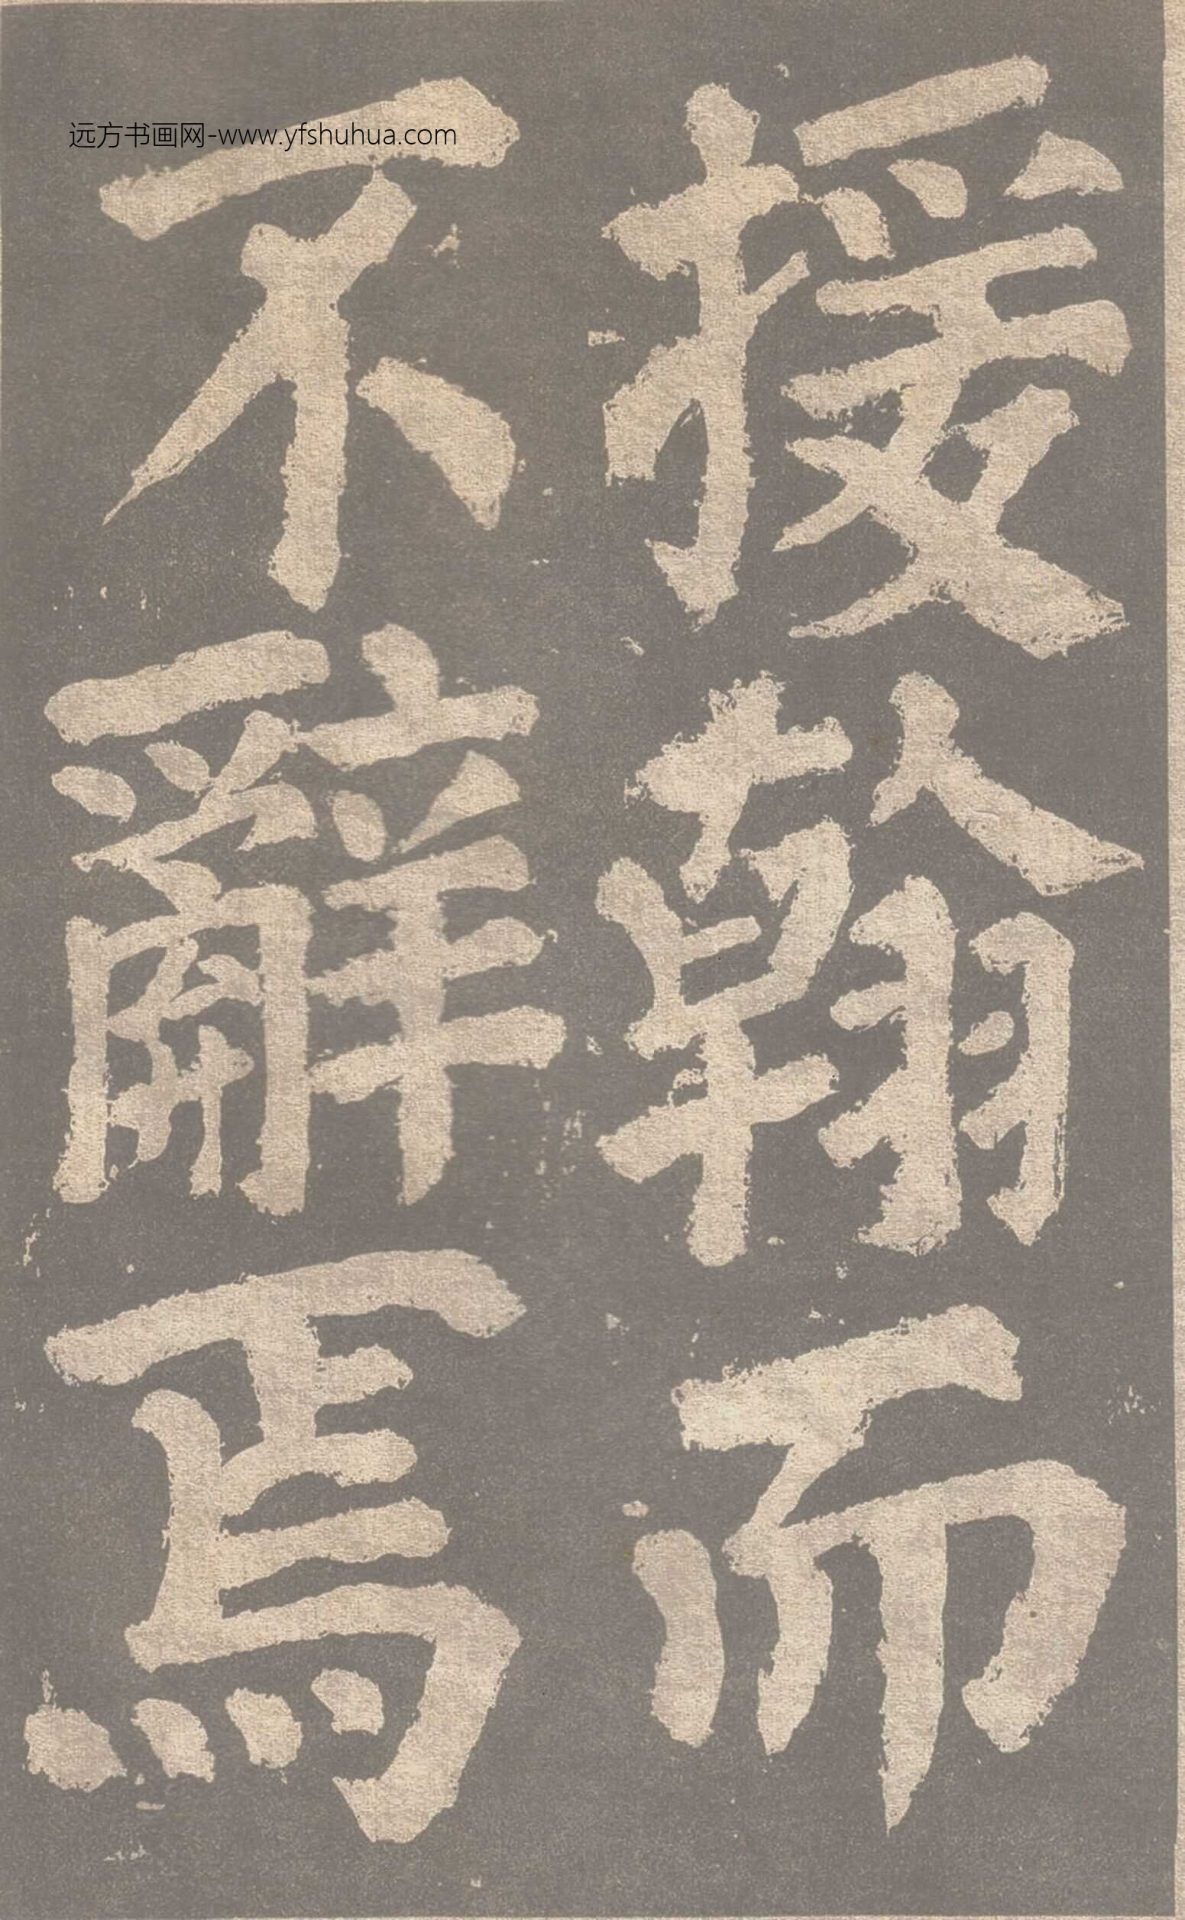 援翰而
不辭焉
远方书画网-www.yfshuhua.com